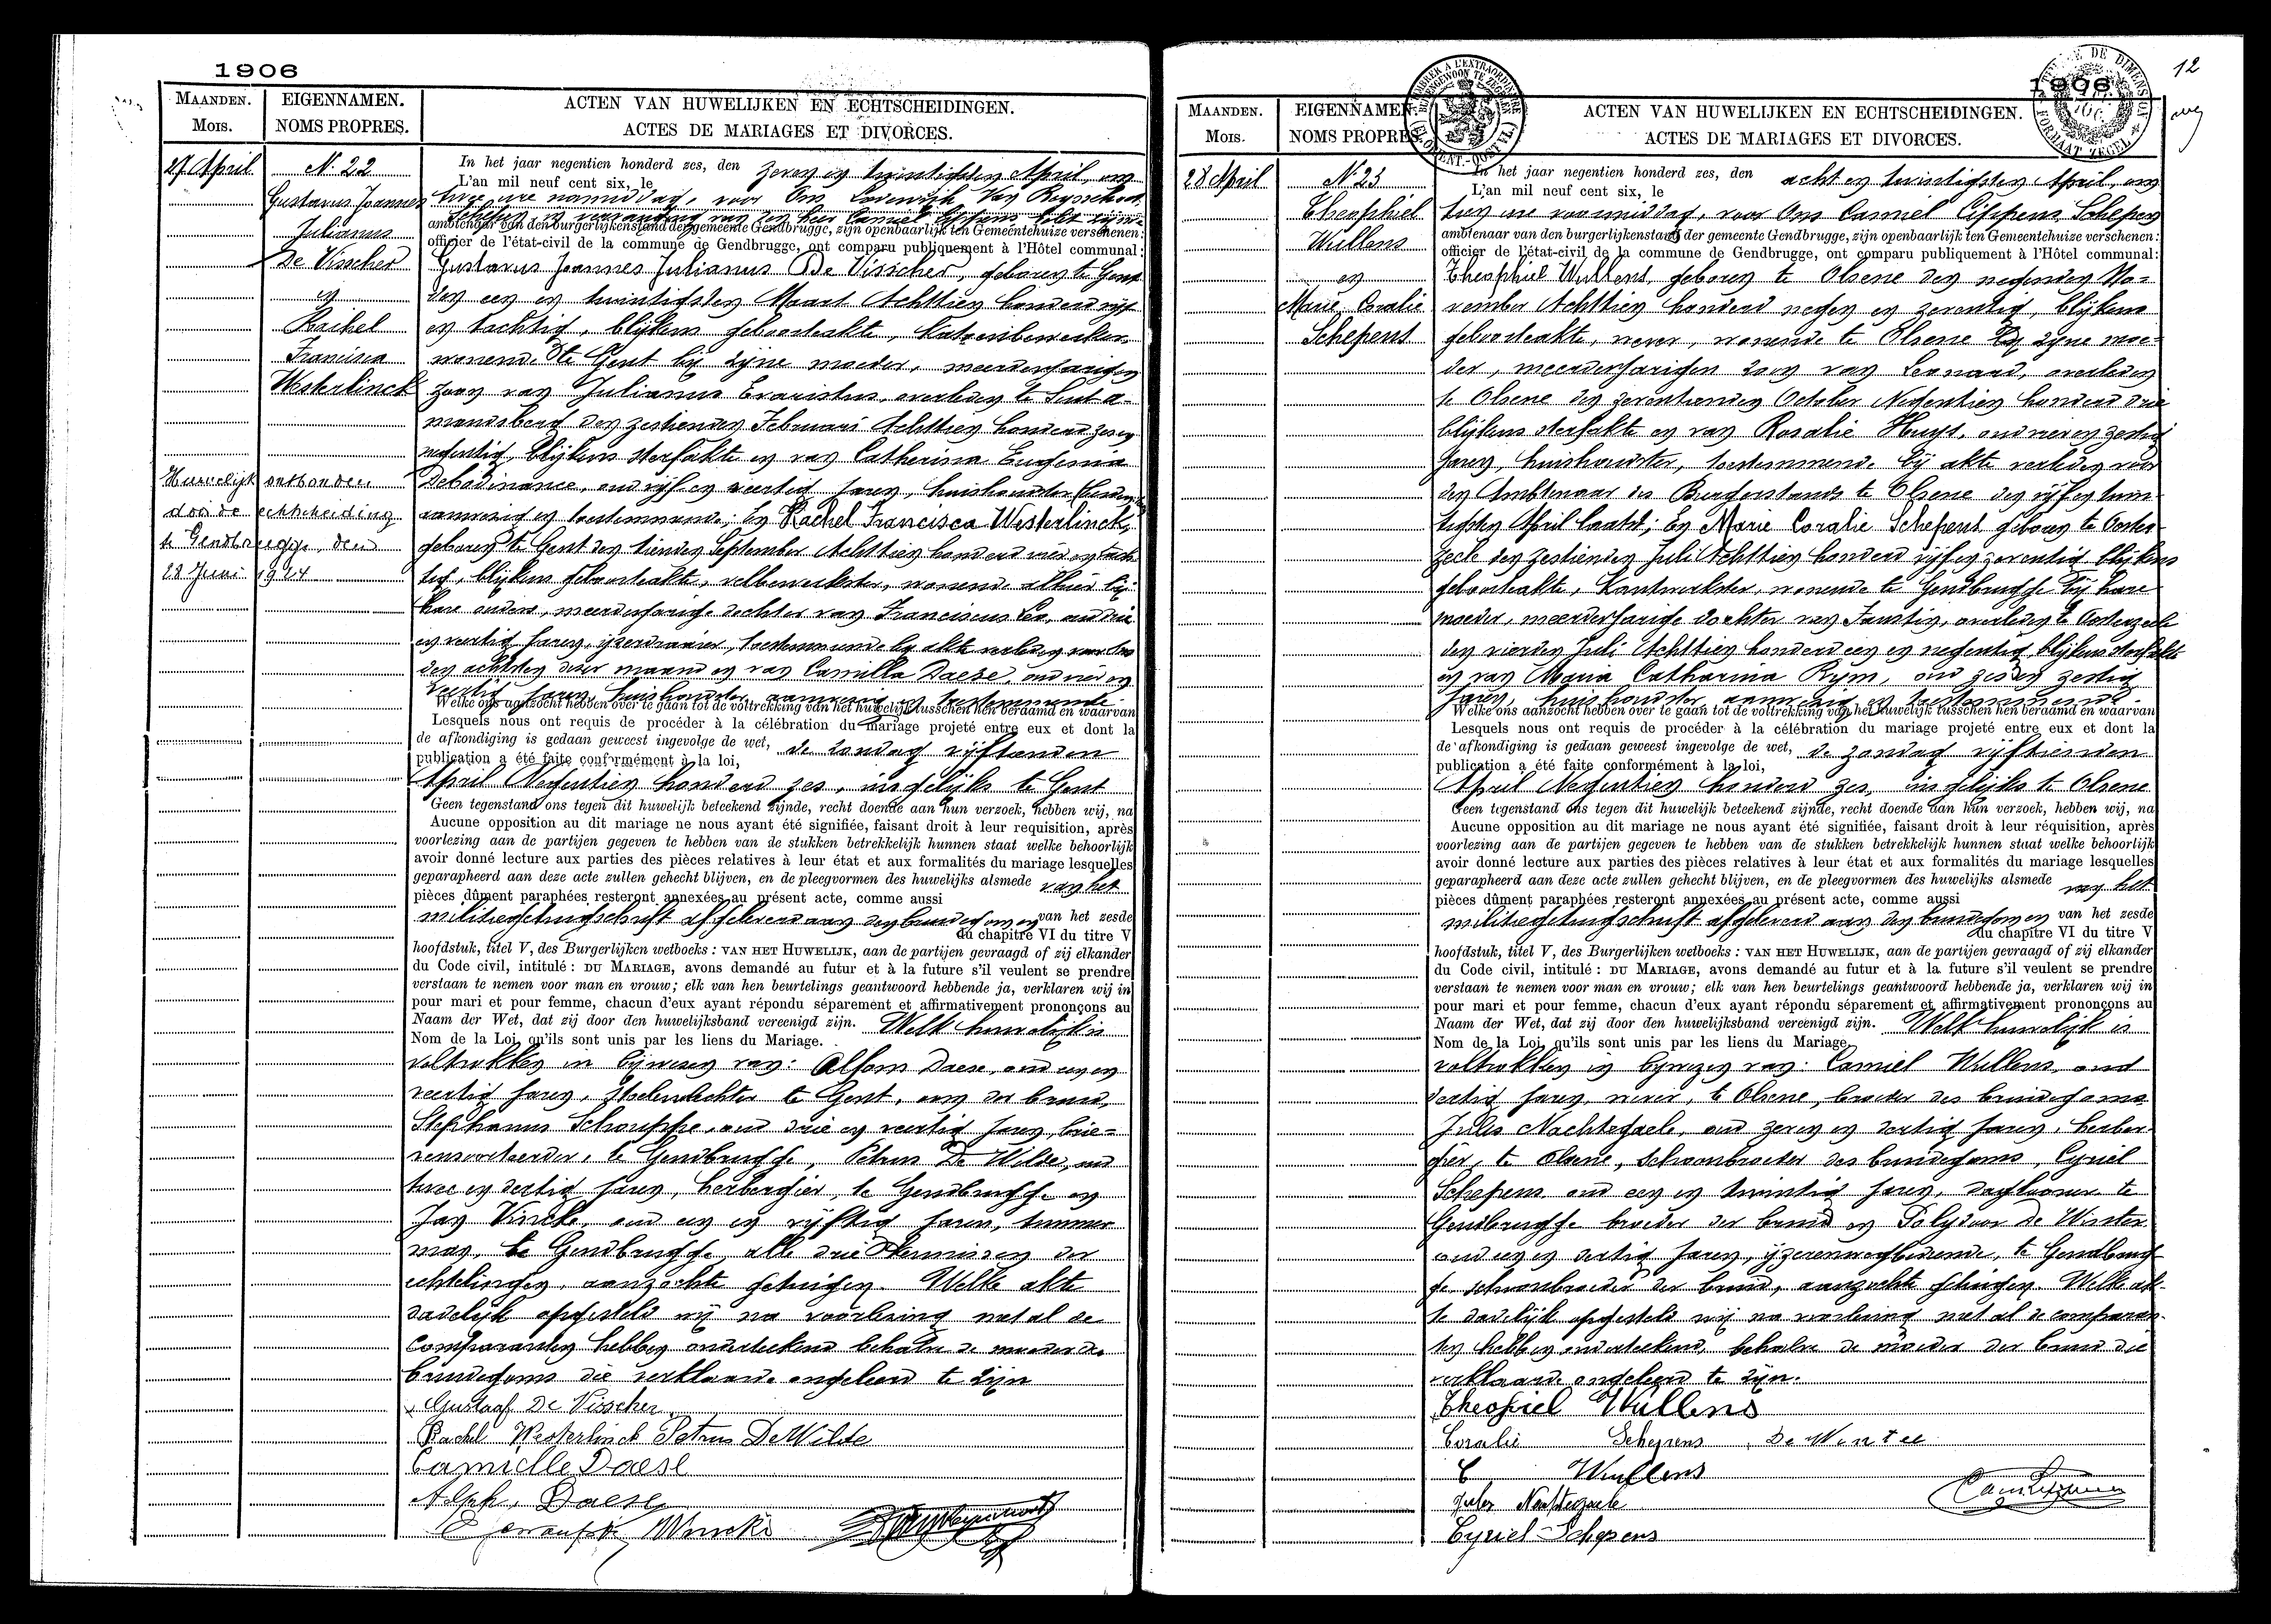 1906
MAANDEN.
Mois.
EIGENNAMEN.
NOMS PROPRES.
ACTEN VAN HUWELIJKEN EN ECHTSCHEIDINGEN.
ACTES DE MARIAGES ET DIVORCES.
27 April
N. 22
Gustavus Joannes
Julianus
De Visscher
en
Rachel
Francisca
Westerlinck
Huwelijk ontbonden
door de echtscheiding
te Gendbrugge, den
28 Juni 1924
In het jaar negentien honderd zes, den zeven en twintigsten April, om
L'an mil neuf cent six, le
twee ure namiddag, voor Ons Lodewijk Van Reysschoot
Schepen in vervanging van den heer Camiel Cippens
ambtenaar van den burgerlijkenstand der gemeente Gendbrugge, zijn openbaarlijk ten Gemeentehuize verschenen:
officier de l'état-civil de la commune de Gendbrugge, ont comparu publiquement à l'Hôtel communal:
Gustavus Joannes Julianus De Visscher, geboren te Gent
den een en twintigsten Maart Achttien honderd vijf
en tachtig, blijkens geboorteakte, katoenbewerker,
wonende te Gent bij zijne moeder, meerderjarigen
zoon van Julianus Evaristus, overleden te Sint A-
mandsberg den zestienden Februari Achttien honderd zeven
negentig, blijkens sterfakte en van Catherina Eugenia
Debodinance, oud vijf en veertig jaren, huishoudster
aanwezig en toestemmende; En Rachel Francisca Westerlinck,
geboren te Gent den tienden September Achttien honderd vier en tach-
tig, blijkens geboorteakte, wonende alhier bij
hare ouders, meerderjarige dochter van Franciscus Leo, oud drie
en veertig jaren, ijzerdraaier, toestemmende bij akte verleden voor Ons
den achtsten dezer maand en van Camilla Daese, oud vier en
veertig jaren, huishoudster, aanwezig en toestemmende
Welke ons aanzocht hebben over te gaan tot de voltrekking van het huwelijk tusschen hen beraamd en waarvan
Lesquels nous ont requis de procéder à la célébration du mariage projeté entre eux et dont la
de afkondiging is gedaan geweest ingevolge de wet, de zondag vijftienden
publication a été faite conformément à la loi,
April Negentien honderd zes, insgelijks te Gent
Geen tegenstand ons tegen dit huwelijk beteekend zijnde, recht doende aan hun verzoek, hebben wij, na
Aucune opposition au dit mariage ne nous ayant été signifiée, faisant droit à leur requisition, après
voorlezing aan de partijen gegeven te hebben van de stukken betrekkelijk hunnen staat welke behoorlijk
avoir donné lecture aux parties des pièces relatives à leur état et aux formalités du mariage lesquelles
geparapheerd aan deze acte zullen gehecht blijven, en de pleegvormen des huwelijks alsmede van het
pièces dûment paraphées resteront annexées au présent acte, comme aussi
militiegetuigschrift afgeleverd aan den bruidegom en van het zesde
du chapitre VI du titre V
hoofdstuk, titel V, des Burgerlijken wetboeks: VAN HET HUWELIJK, aan de partijen gevraagd of zij elkander
du Code civil, intitulé: DU MARIAGE, avons demandé au futur et à la future s'il veulent se prendre
verstaan te nemen voor man en vrouw; elk van hen beurtelings geantwoord hebbende ja, verklaren wij in
pour mari et pour femme, chacun d'eux ayant répondu séparement et affirmativement prononçons au
Naam der Wet, dat zij door den huwelijksband vereenigd zijn. Welk huwelijk is
Nom de la Loi, qu'ils sont unis par les liens du Mariage.
voltrokken in bijwezen van: Alfons Daese, oud een en
veertig jaren, te Gent, oom der bruid,
Stephanus Schouppe, oud drie en veertig jaren, brie-
vensorteerder, te Gendbrugge, Petrus De Wilde, oud
twee en dertig jaren, herbergier, te Gendbrugge en
Jan Vincke, oud een en vijftig jaren, timmer
man, te Gendbrugge, alle drie kennissen der
echtelingen, aanzochte getuigen. Welke akte
dadelijk opgesteld wij na voorlezing met al de
comparanten hebben onderteekend behalve de moeder des
bruidegoms die verklaarde ongeleerd te zijn
Gustaaf De Visscher
Rachel Westerlinck Petrus De Wilde
Camille Daese
Alph. Daese
Vincke
1906
12
MAANDEN.
Mois.
EIGENNAMEN.
NOMS PROPRES.
ACTEN VAN HUWELIJKEN EN ECHTSCHEIDINGEN.
ACTES DE MARIAGES ET DIVORCES.
28 April
N. 23
Theophiel
Wullens
en
Marie Coralie
Schepens
In het jaar negentien honderd zes, den acht en twintigsten April, om
L'an mil neuf cent six, le
tien ure voormiddag, voor Ons Camiel Cippens Schepen
ambtenaar van den burgerlijkenstand der gemeente Gendbrugge, zijn openbaarlijk ten Gemeentehuize verschenen:
officier de l'état-civil de la commune de Gendbrugge, ont comparu publiquement à l'Hôtel communal:
Theophiel Wullens, geboren te Olsene den negenden No-
vember Achttien honderd negen en zeventig, blijkens
geboorteakte, wever, wonende te Olsene bij zijne moe-
der, meerderjarigen zoon van Leonard, overleden
te Olsene den zeventienden October Negentien honderd drie
blijkens sterfakte en van Rosalie Huys, oud vier en zestig
jaren, huishoudster, toestemmende bij akte verleden voor
den Ambtenaar des Burgerstands te Olsene den vijf en twin-
tigsten April laatst; En Marie Coralie Schepens geboren te Ooster-
zeele den zestienden Juli Achttien honderd vijf en zeventig blijkens
geboorteakte, kantwerkster, wonende te Gendbrugge bij hare
moeder, meerderjarige dochter van Faustin, overleden te Oosterzeele
den vierden Juli Achttien honderd een en negentig, blijkens sterfakte
en van Maria Catharina Rym, oud zes en zestig
jaren, huishoudster aanwezig en toestemmende
Welke ons aanzocht hebben over te gaan tot de voltrekking van het huwelijk tusschen hen beraamd en waarvan
Lesquels nous ont requis de procéder à la célébration du mariage projeté entre eux et dont la
de afkondiging is gedaan geweest ingevolge de wet, de zondag vijftienden
publication a été faite conformément à la loi,
April Negentien honderd zes, insgelijks te Olsene
Geen tegenstand ons tegen dit huwelijk beteekend zijnde, recht doende aan hun verzoek, hebben wij, na
Aucune opposition au dit mariage ne nous ayant été signifiée, faisant droit à leur réquisition, après
voorlezing aan de partijen gegeven te hebben van de stukken betrekkelijk hunnen staat welke behoorlijk
avoir donné lecture aux parties des pièces relatives à leur état et aux formalités du mariage lesquelles
geparapheerd aan deze acte zullen gehecht blijven, en de pleegvormen des huwelijks alsmede van het
pièces dûment paraphées resteront annexées au présent acte, comme aussi
militiegetuigschrift afgeleverd aan den bruidegom en van het zesde
du chapitre VI du titre V
hoofdstuk, titel V, des Burgerlijken wetboeks: VAN HET HUWELIJK, aan de partijen gevraagd of zij elkander
du Code civil, intitulé: DU MARIAGE, avons demandé au futur et à la future s'il veulent se prendre
verstaan te nemen voor man en vrouw; elk van hen beurtelings geantwoord hebbende ja, verklaren wij in
pour mari et pour femme, chacun d'eux ayant répondu séparement et affirmativement prononçons au
Naam der Wet, dat zij door den huwelijksband vereenigd zijn. Welk huwelijk is
Nom de la Loi, qu'ils sont unis par les liens du Mariage.
voltrokken in bijwezen van: Camiel Wullens, oud
dertig jaren, wever, te Olsene, broeder des bruidegoms
Jules Nachtegaele, oud zeven en dertig jaren, herber-
gier, te Olsene, schoonbroeder des bruidegoms, Cyriel
Schepens oud een en twintig jaren, daglooner te
Gendbrugge broeder der bruid en Polydoor De Winter
oud een en dertig jaren, ijzerenwegbediende, te Gendbrug-
ge schoonbroeder der bruid, aanzochte getuigen. Welke ak-
te dadelijk opgesteld wij na voorlezing met al de comparan-
ten hebben onderteekend, behalve de moeder der bruid die
verklaarde ongeleerd te zijn.
Theofiel Wullens
Coralie Schepens De Winter
C Wullens
Jules Nachtegaele
Cyriel Schepens